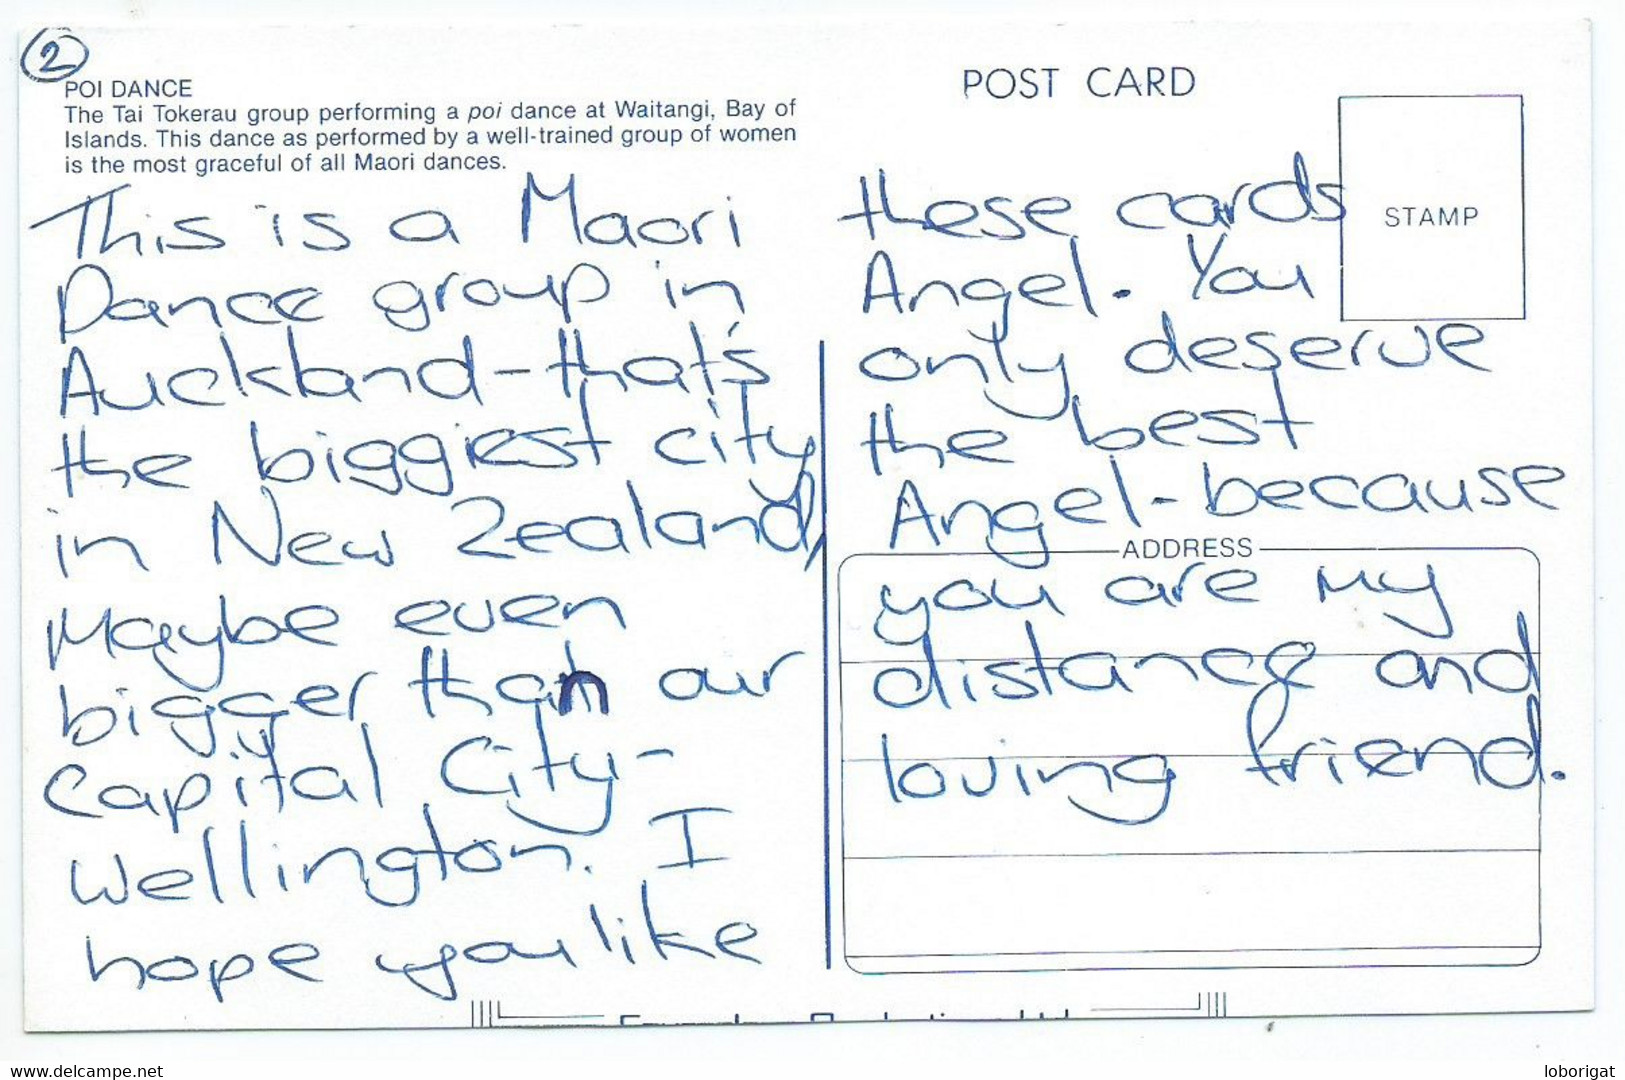 2
POI DANCE
The Tai Tokerau group performing a poi dance at Waitangi, Bay of
Islands. This dance as performed by a well-trained group of women
is the most graceful of all Maori dances.
This is a Maori
Dance group in
Auckland - that's
the biggiest city
in New Zealand,
Maybe even
bigger than our
Capital City -
Wellington. I
hope you like
POST CARD
STAMP
these cards
Angel. You
only deserve
the best
Angel - because
ADDRESS
you are my
distance and
loving friend.
www.delcampe.net
loborigat